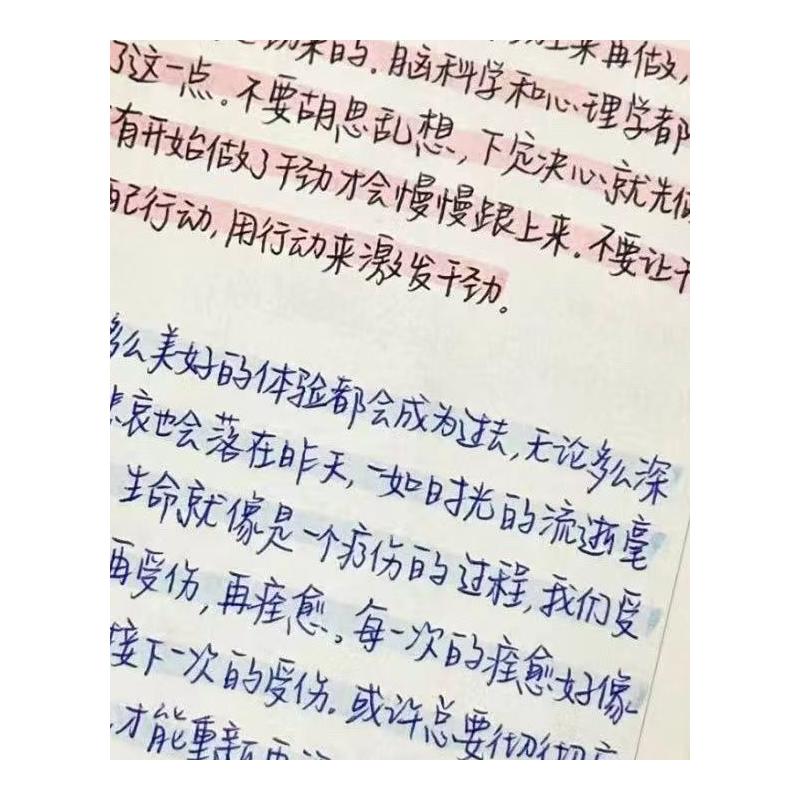 来的。脑科学和心理学都
了这一点。不要胡思乱想,下定决心就先做
有开始做了干劲才会慢慢跟上来。不要让干
配行动,用行动来激发干劲。
多么美好的体验都会成为过去,无论多么深
悲哀也会落在昨天,一如时光的流逝毫
生命就像是一个疗伤的过程,我们受
再受伤,再痊愈。每一次的痊愈好像
接下一次的受伤。或许总要彻彻底
,才能重新再